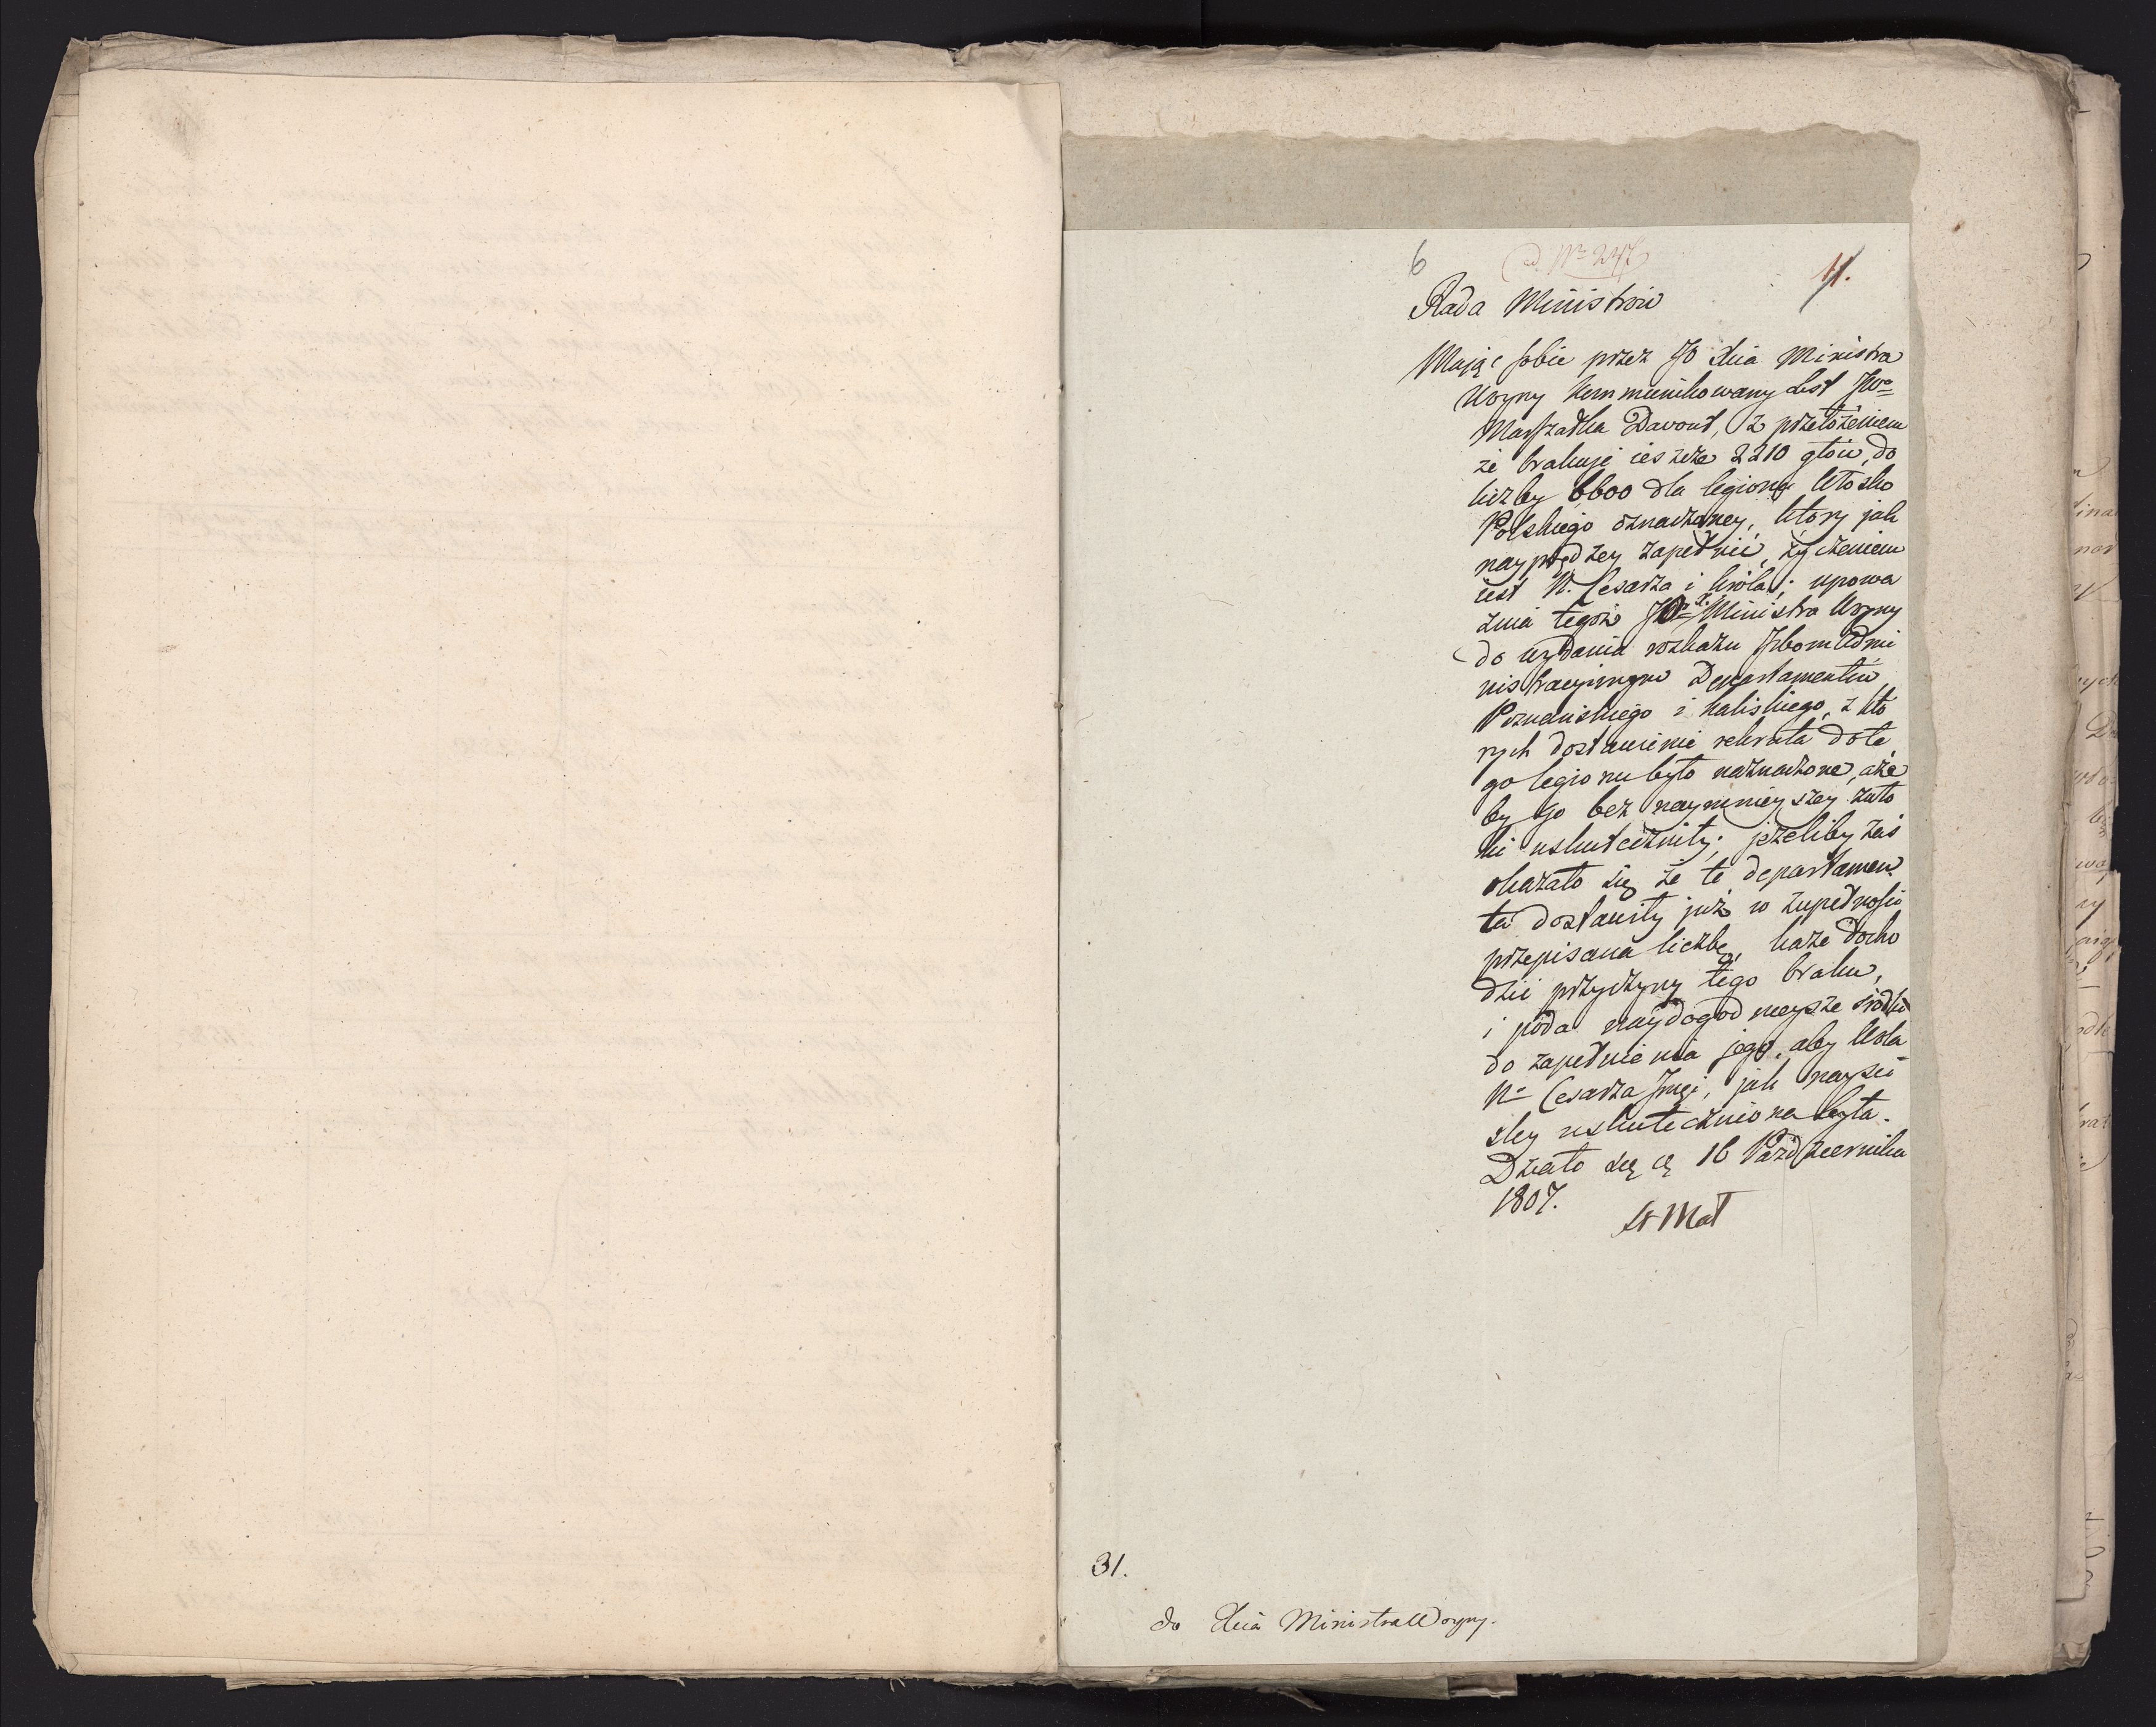 6
ad N= 247
11.
Rada Ministrów
Mając sobie przez JO Xcia Ministra
Woyny kommunikowany List JW=
Marszałka Davout, z przełożeniem
że brakuje ieszcze 2210 głów, do
liczby 6600 dla legionu Włosko
Polskiego oznaczoney, ktory jak
nayprędzey zapełnić, życzeniem
iest N. Cesarza i króla; upowa
żnia tegoż Ministra Woyny
do wydania rozkazu Izbom Admi
nistracyinym Departamentów
Poznańskiego i Kaliskiego, z kto
rych dostawienie rekruta do te
go legionu było naznaczone, aże
by go bez naymnieyszey zwło
ki uskuteczniły; jeżeliby zaś
okazało się że te departamen
ta dostawiły już w zupełności
przepisaną liczbę, każe docho
dzić przyczyny tego braku,
i poda naydogodnieysze srodki
do zapełnienia jego, aby Wola
N= Cesarza Jmci, jak nayści
sley uskuteczniona była.
Działo się d 16 Pazdziernika
1807.
St Mał
31.
do Xcia Ministra Woyny.